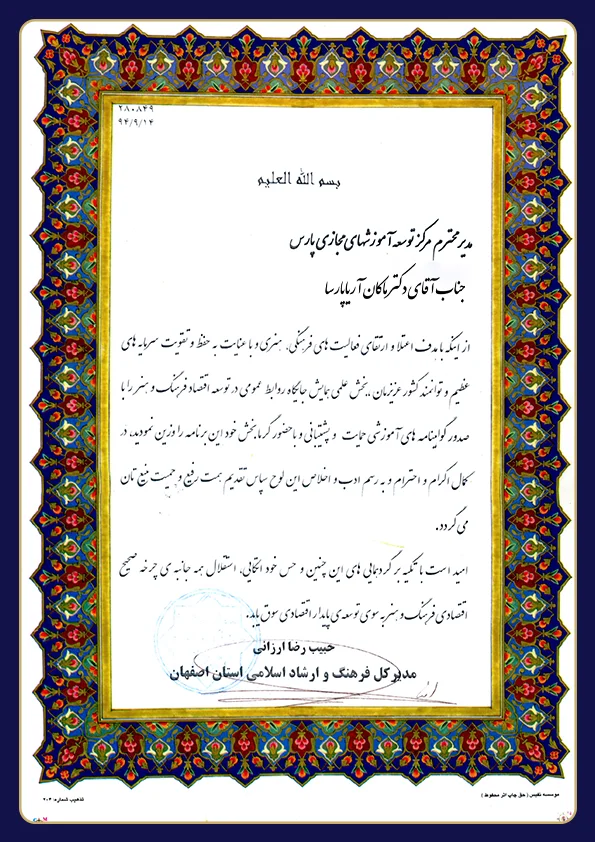 ۲۸۰۸۴۹
۹۴/۹/۱۴
بسم الله العلیم
مدیر محترم مرکز توسعه آموزشهای مجازی پارس
جناب آقای دکتر ماکان آریاپارسا
از اینکه با هدف اعتلا و ارتقای فعالیت های فرهنگی، هنری و با عنایت به حفظ و تقویت سرمایه های
عظیم و توانمند کشور عزیزمان، بخش علمی همایش جایگاه روابط عمومی در توسعه اقتصاد فرهنگ و هنر را با
صدور گواهینامه های آموزشی حمایت و پشتیبانی و با حضور گرمابخش خود این برنامه را وزین نمودید، در
کمال اکرام و احترام و به رسم ادب و اخلاص این لوح سپاس تقدیم همت رفیع و حمیت منیع تان
می گردد.
امید است با تکیه بر گردهمایی های این چنین و حس خود اتکایی، استقلال همه جانبه ی چرخه صحیح
اقتصادی فرهنگ و هنر به سوی توسعه ی پایدار اقتصادی سوق یابد.
حبیب رضا ارزانی
مدیر کل فرهنگ و ارشاد اسلامی استان اصفهان
موسسه نفیس (حق چاپ اثر محفوظ)
تذهیب شماره: ۲۰۳